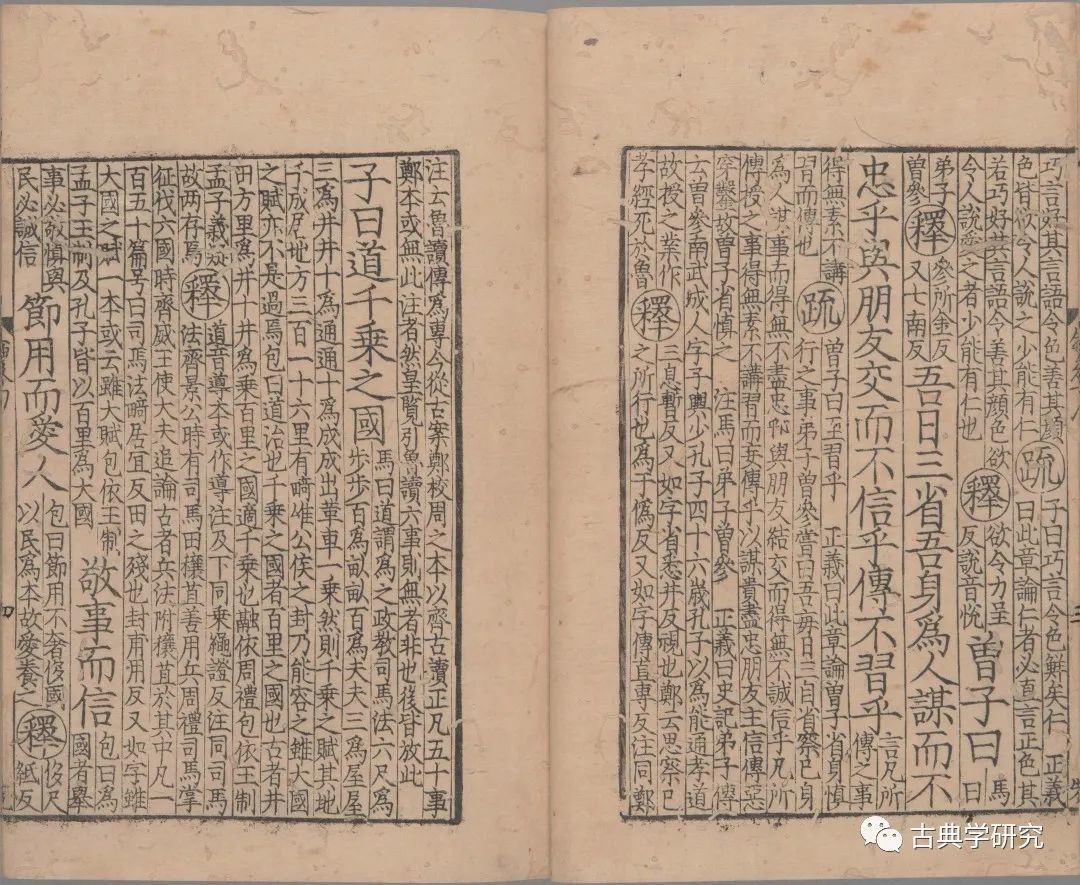 巧言好其言語令色善其顔
色皆欲令人說之少能有仁
疏
子曰巧言令色鮮矣仁 正義
曰此章論仁者必直言正色其
若巧好其言語令善其顔色欲
令人說愛之者少能有仁也
釋
欲令力呈
反說音悅
曾子曰
馬
曰
弟子
曾參
釋
參所金反
又七南反
吾日三省吾身爲人謀而不
忠乎與朋友交而不信乎傳不習乎
言凡所
傳之事
得無素不講
習而傳也
疏
曾子曰至習乎 正義曰此章論曾子省身慎
行之事弟子曾參嘗曰吾每日三自省察己身
爲人謀事而得無不盡忠心與朋友結交而得無不誠信乎凡所
傳授之事得無素不講習而妄傳乎以謀貴盡忠朋友主信傳惡
穿鑿故曾子省慎之 注馬曰弟子曾參 正義曰史記弟子傳
云曾參南武成人字子輿少孔子四十六歲孔子以爲能通孝道
故授之業作
孝經死於魯
釋
三息暫反又如字省悉井反視也鄭云思察己
之所行也爲于僞反又如字傳直專反注同鄭
注云魯讀傳爲專今從古案鄭校周之本以齊古讀正凡五十事
鄭本或無此注者然皇覽引魯讀六事則無者非也後皆放此
子曰道千乘之國
馬曰道謂爲之政教司馬法六尺爲
步步百爲畝畝百爲夫夫三爲屋屋
三爲井井十爲通通十爲成成出革車一乘然則千乘之賦其地
千成居地方三百一十六里有畸唯公侯之封乃能容之雖大國
之賦亦不是過焉包曰道治也千乘之國者百里之國也古者井
田方里爲井十井爲乘百里之國適千乘也融依周禮包依王制
孟子義疑
故兩存焉
釋
道音導本或作導注及下同乘繩證反注同司馬
法齊景公時有司馬田穰苴善用兵周禮司馬掌
征伐六國時齊威王使大夫追論古者兵法附穰苴於其中凡一
百五十篇号曰司馬法畸居宜反田之殘也封甫用反又如字雖
大國之賦一本或云雖大賦包依王制
孟子王制及孔子皆以百里爲大國
敬事而信
包曰爲
國者舉
事必敬慎與
民必誠信
節用而愛人
包曰節用不奢侈國
以民爲本故愛養之
釋
侈尺
紙反
古典学研究